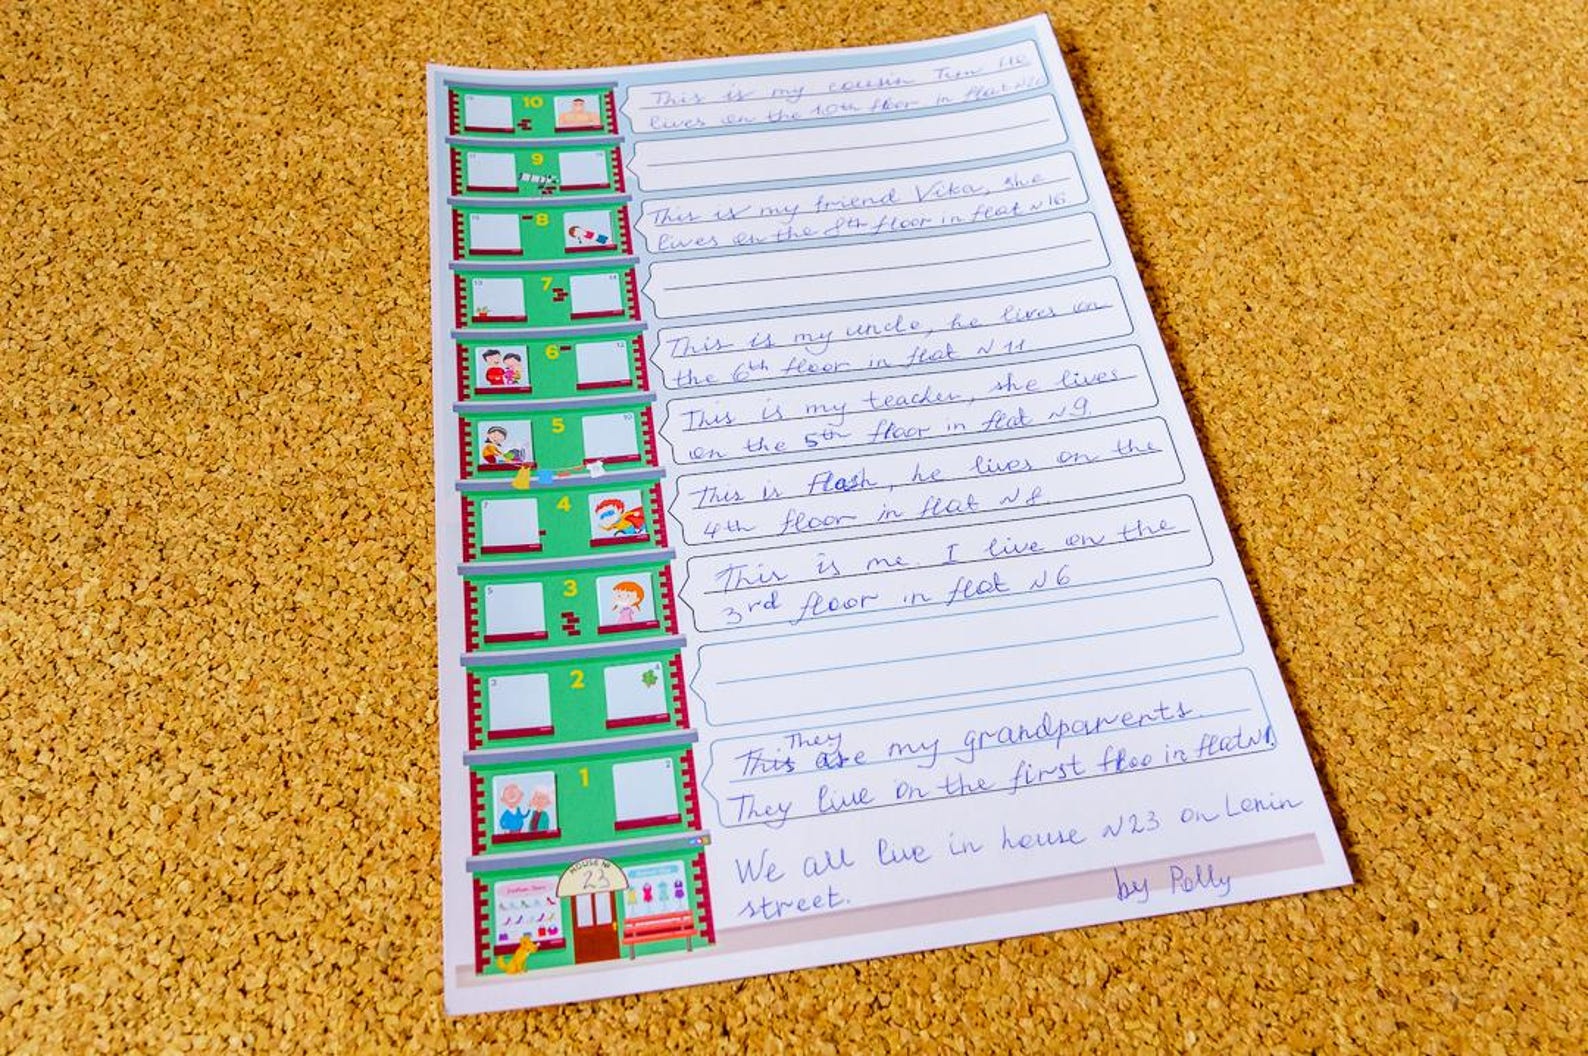 10
This is my cousin Tim. He
lives on the 10th floor in flat N20
9
8
This is my friend Vika, she
lives on the 8th floor in flat N16
7
13
14
6
12
This is my uncle, he lives on
the 6th floor in flat N 11
5
10
This is my teacher, she lives
on the 5th floor in flat N 9.
4
7
This is Flash, he lives on the
4th floor in flat N 8
3
5
This is me. I live on the
3rd floor in flat N 6
2
3
4
1
2
They
This are my grandparents.
They live on the first floo in flat N1.
We all live in house N23 on Lenin
street.
by Polly
HOUSE №
23